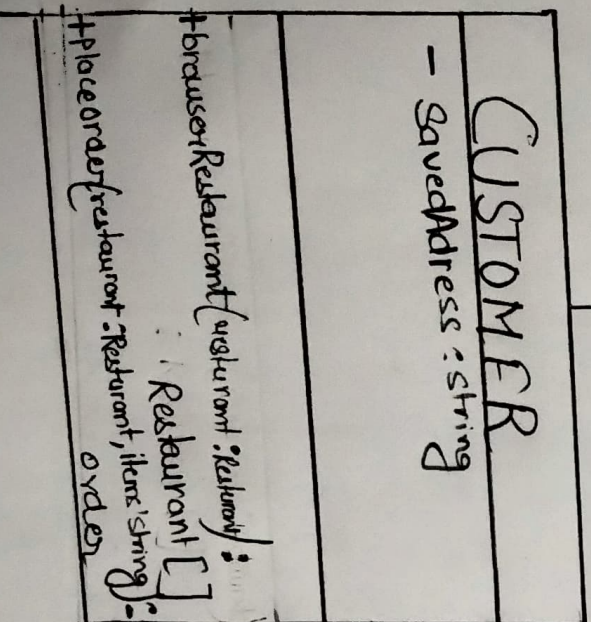 CUSTOMER
- SavedAdress : string
+brouserRestaurant(resturant : Resturant) :
Restaurant []
+placeorder(restaurant : Resturant, items'string) :
order